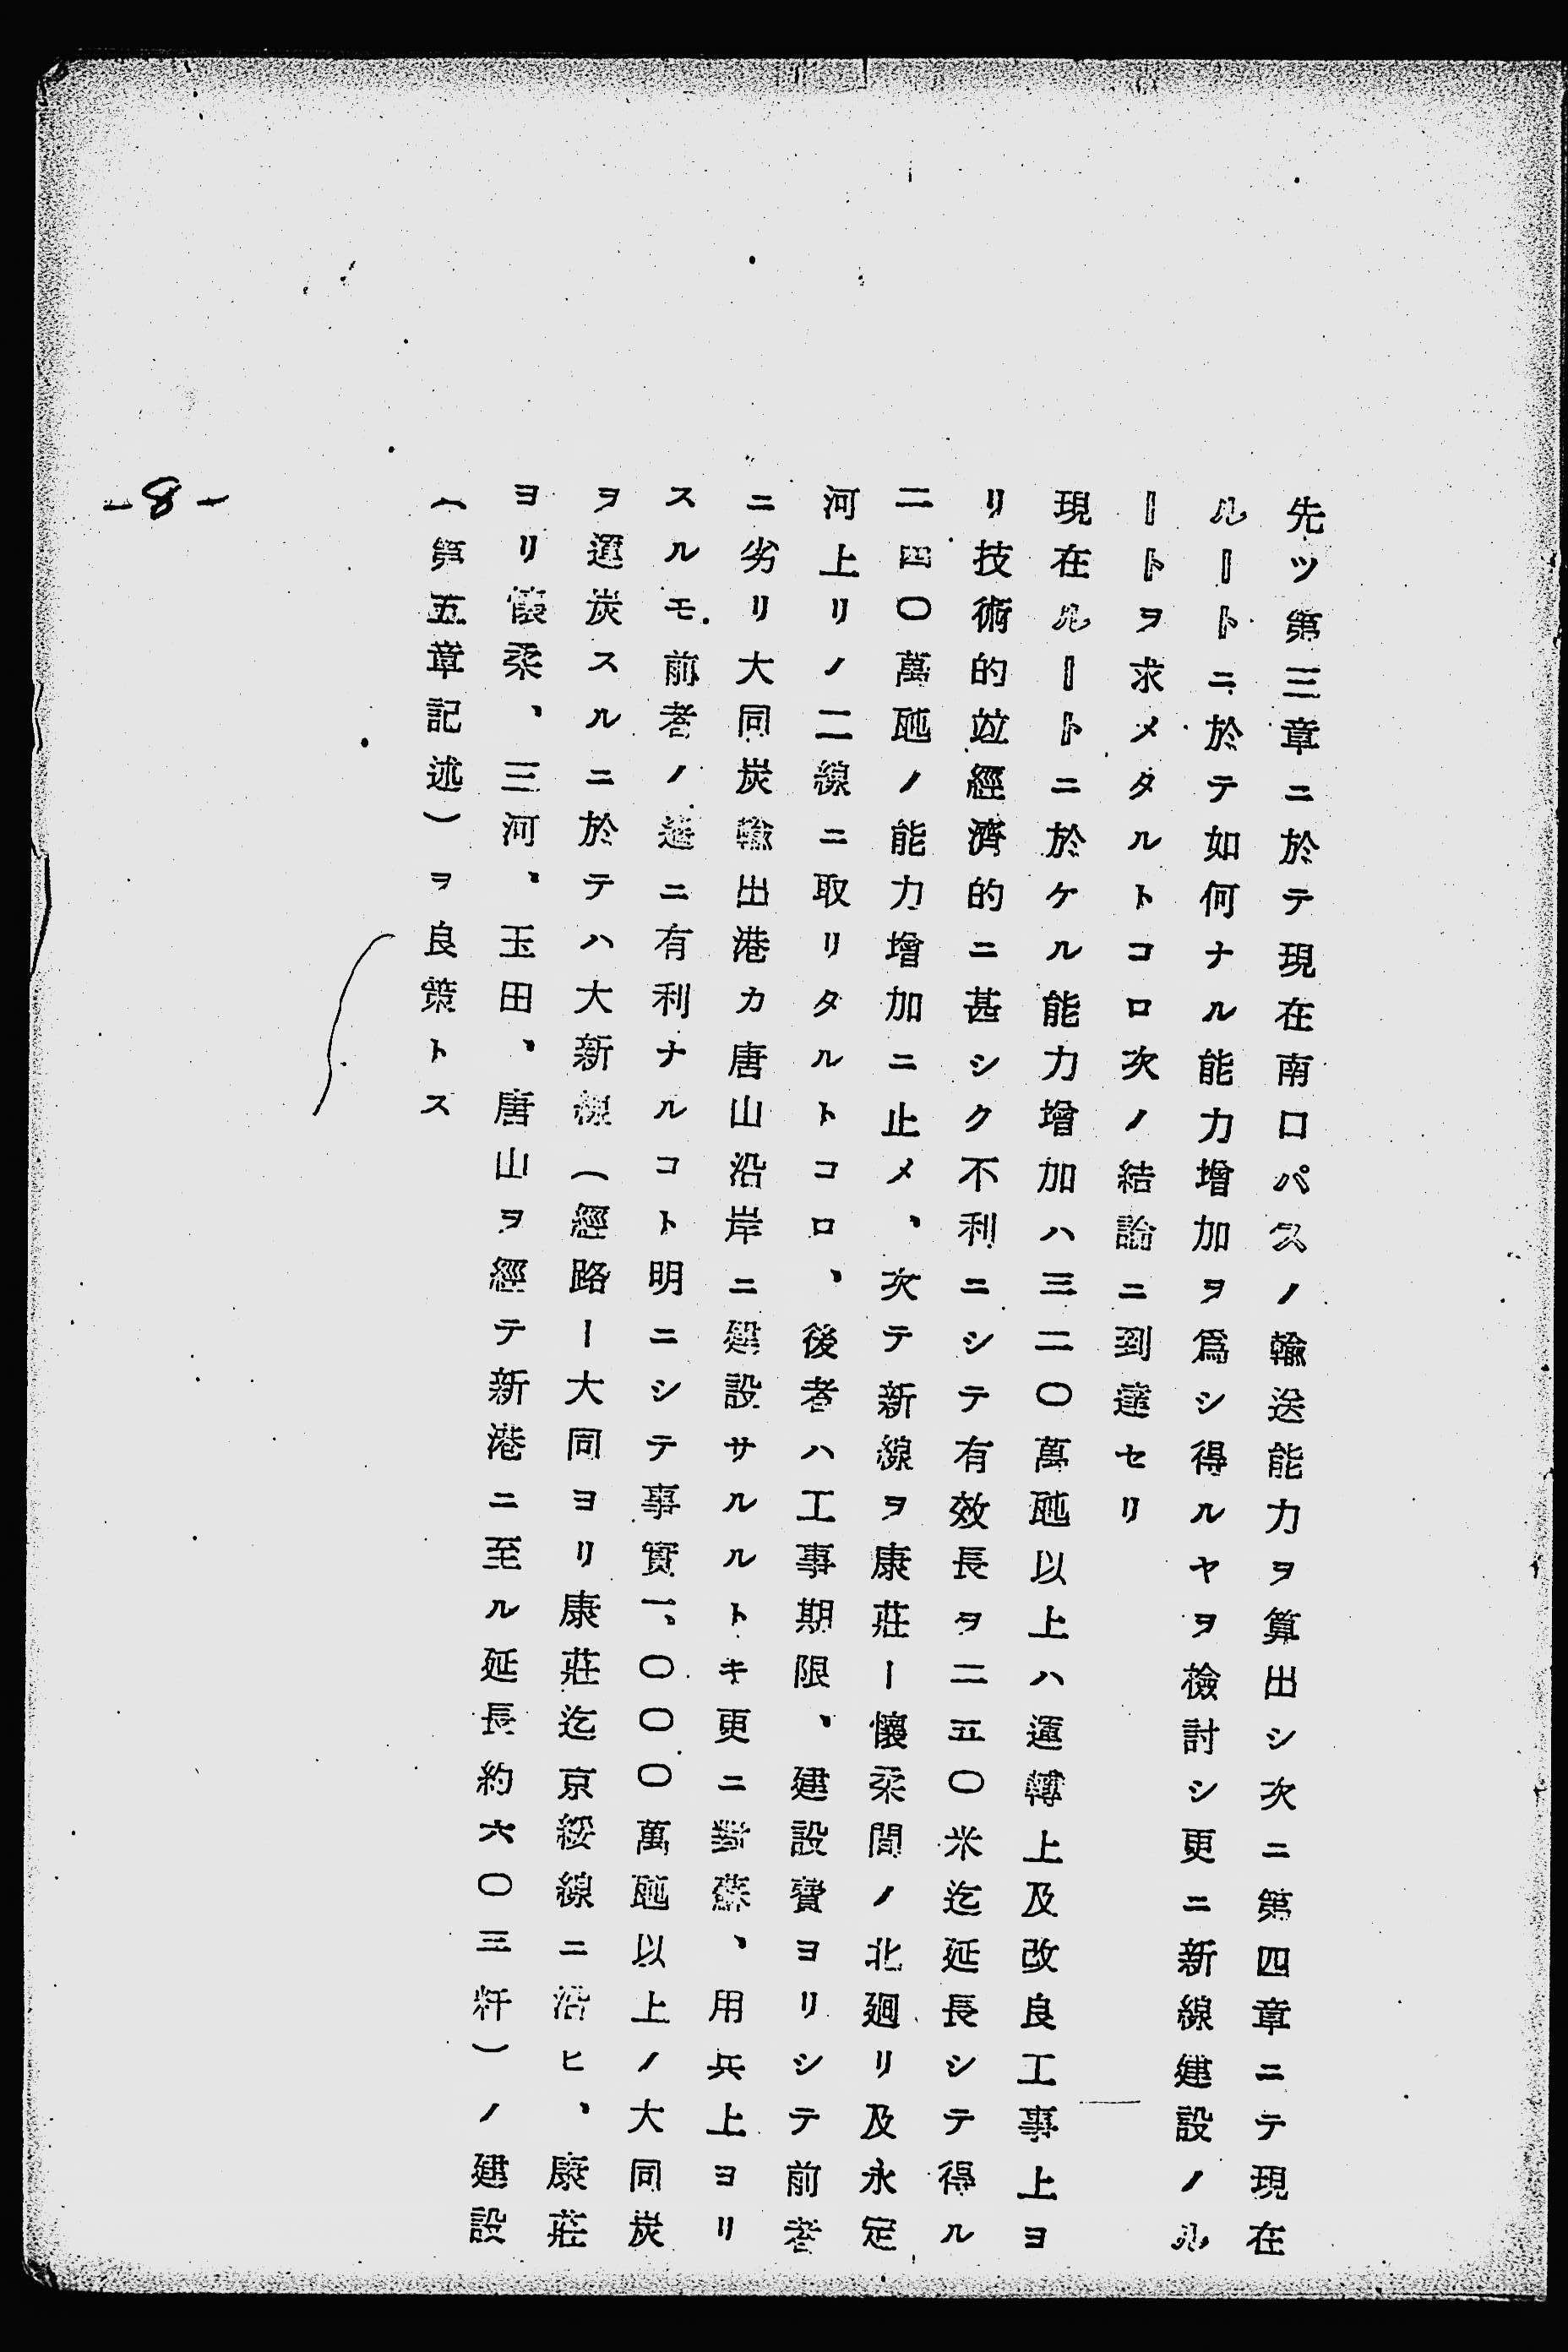 先ツ第三章ニ於テ現在南口パスノ輸送能力ヲ算出シ次ニ第四章ニテ現在
ルートニ於テ如何ナル能力增加ヲ爲シ得ルヤヲ檢討シ更ニ新線建設ノル
ートヲ求メタルトコロ次ノ結論ニ到達セリ
現在ルートニ於ケル能力增加ハ三二〇萬瓲以上ハ運轉上及改良工事上ヨ
リ技術的竝經濟的ニ甚シク不利ニシテ有效長ヲ二五〇米迄延長シテ得ル
二四〇萬瓲ノ能力增加ニ止メ、次テ新線ヲ康莊ー懷柔間ノ北廻リ及永定
河上リノ二線ニ取リタルトコロ、後者ハ工事期限、建設費ヨリシテ前者
ニ劣リ大同炭輸出港カ唐山沿岸ニ建設サルルトキ更ニ對蘇、用兵上ヨリ
スルモ前者ノ遙ニ有利ナルコト明ニシテ事實一、〇〇〇萬瓲以上ノ大同炭
ヲ運炭スルニ於テハ大新線（經路ー大同ヨリ康莊迄京綏線ニ沿ヒ、康莊
ヨリ懷柔、三河、玉田、唐山ヲ經テ新港ニ至ル延長約六〇三粁）ノ建設
（第五章記述）ヲ良策トス
-8-